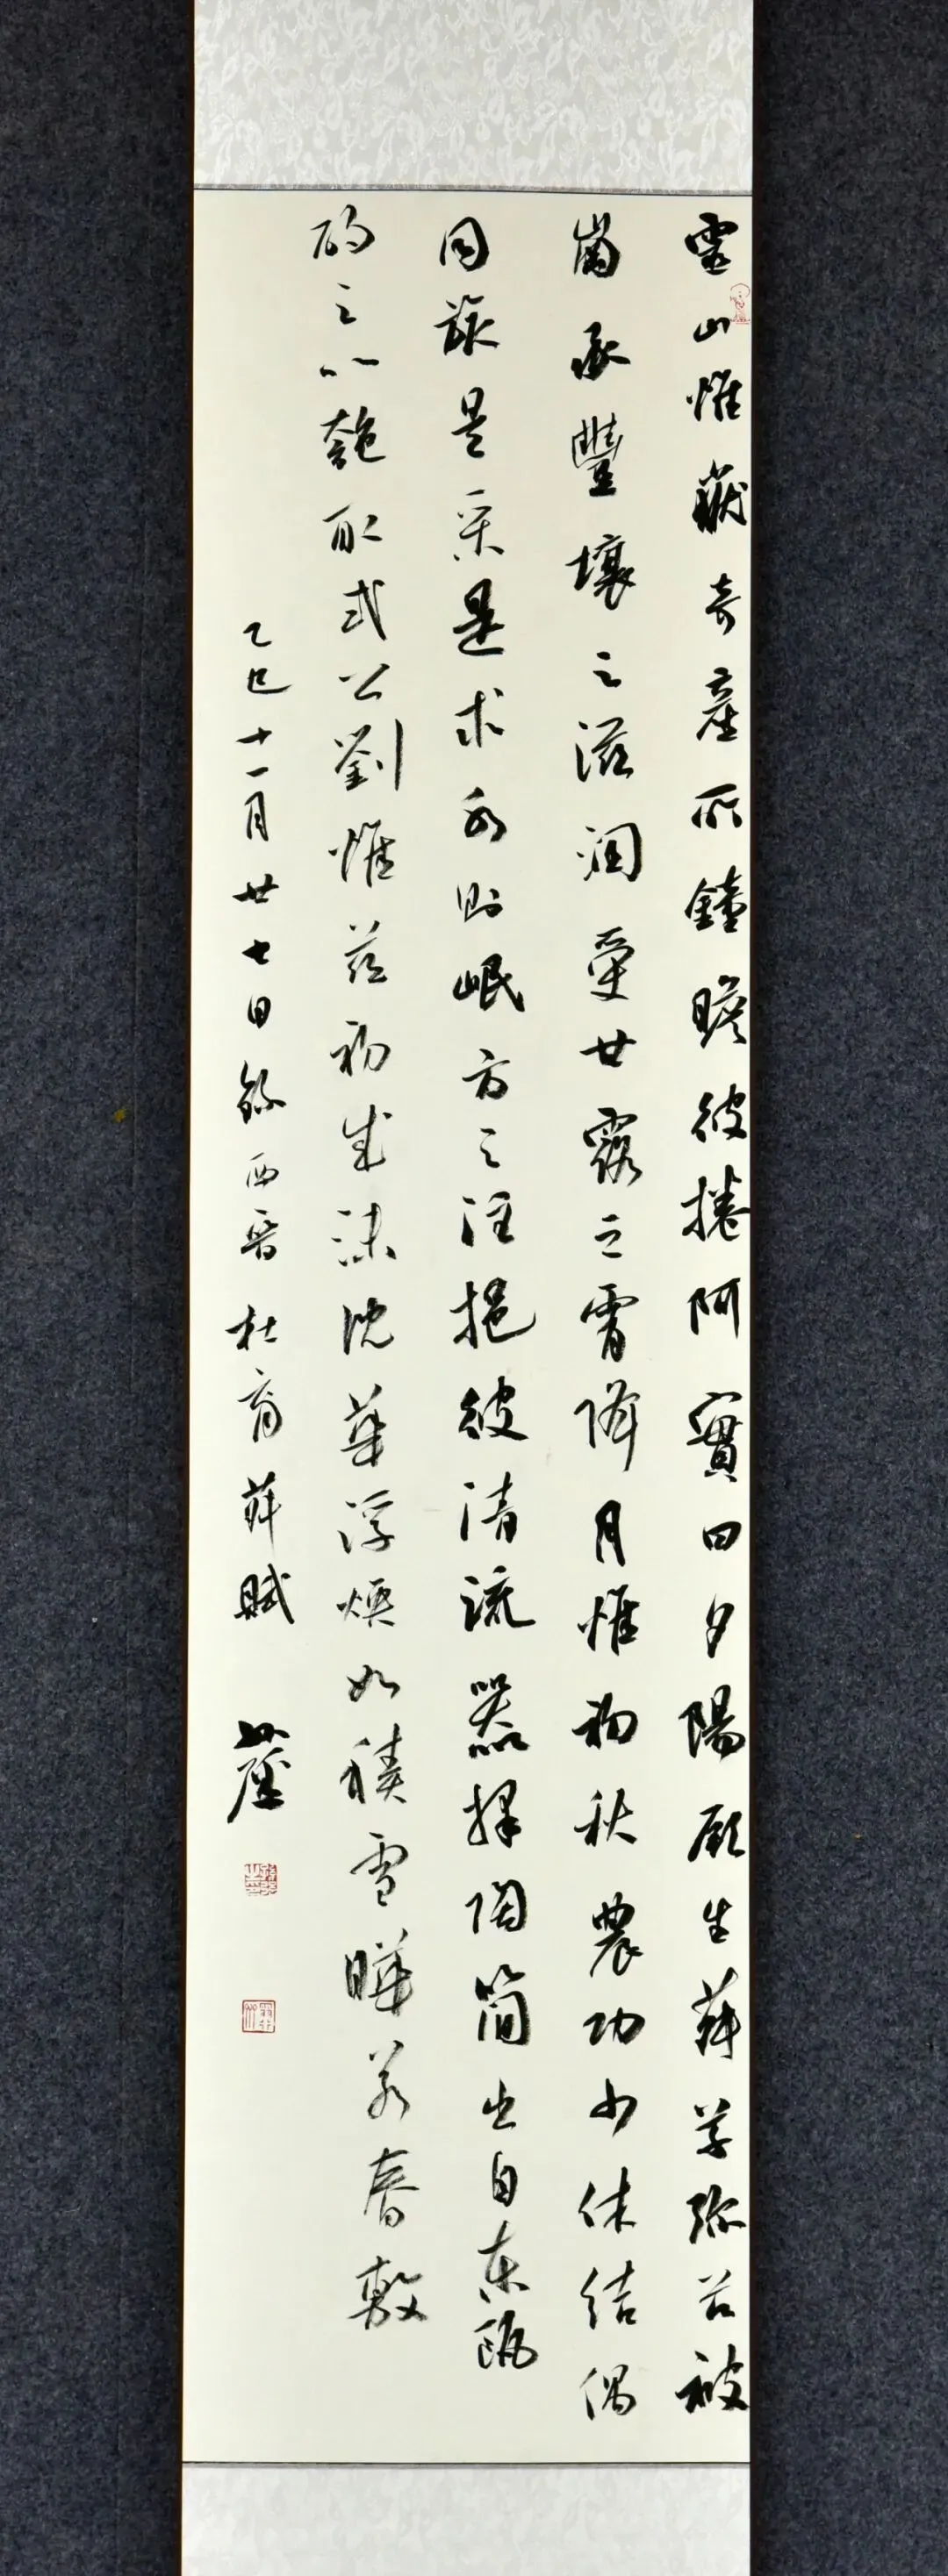 靈山惟嶽奇產所鍾瞻彼捲阿實曰夕陽厥生荈草彌谷被
崗承豐壤之滋潤受甘露之霄降月惟初秋農功少休結偶
同旅是采是求水則岷方之注挹彼清流器擇陶簡出自東甌
酌之以匏取式公劉惟茲初成沫沈華浮煥如積雪曄若春敷
乙巳十一月廿七日錄西晉杜育荈賦